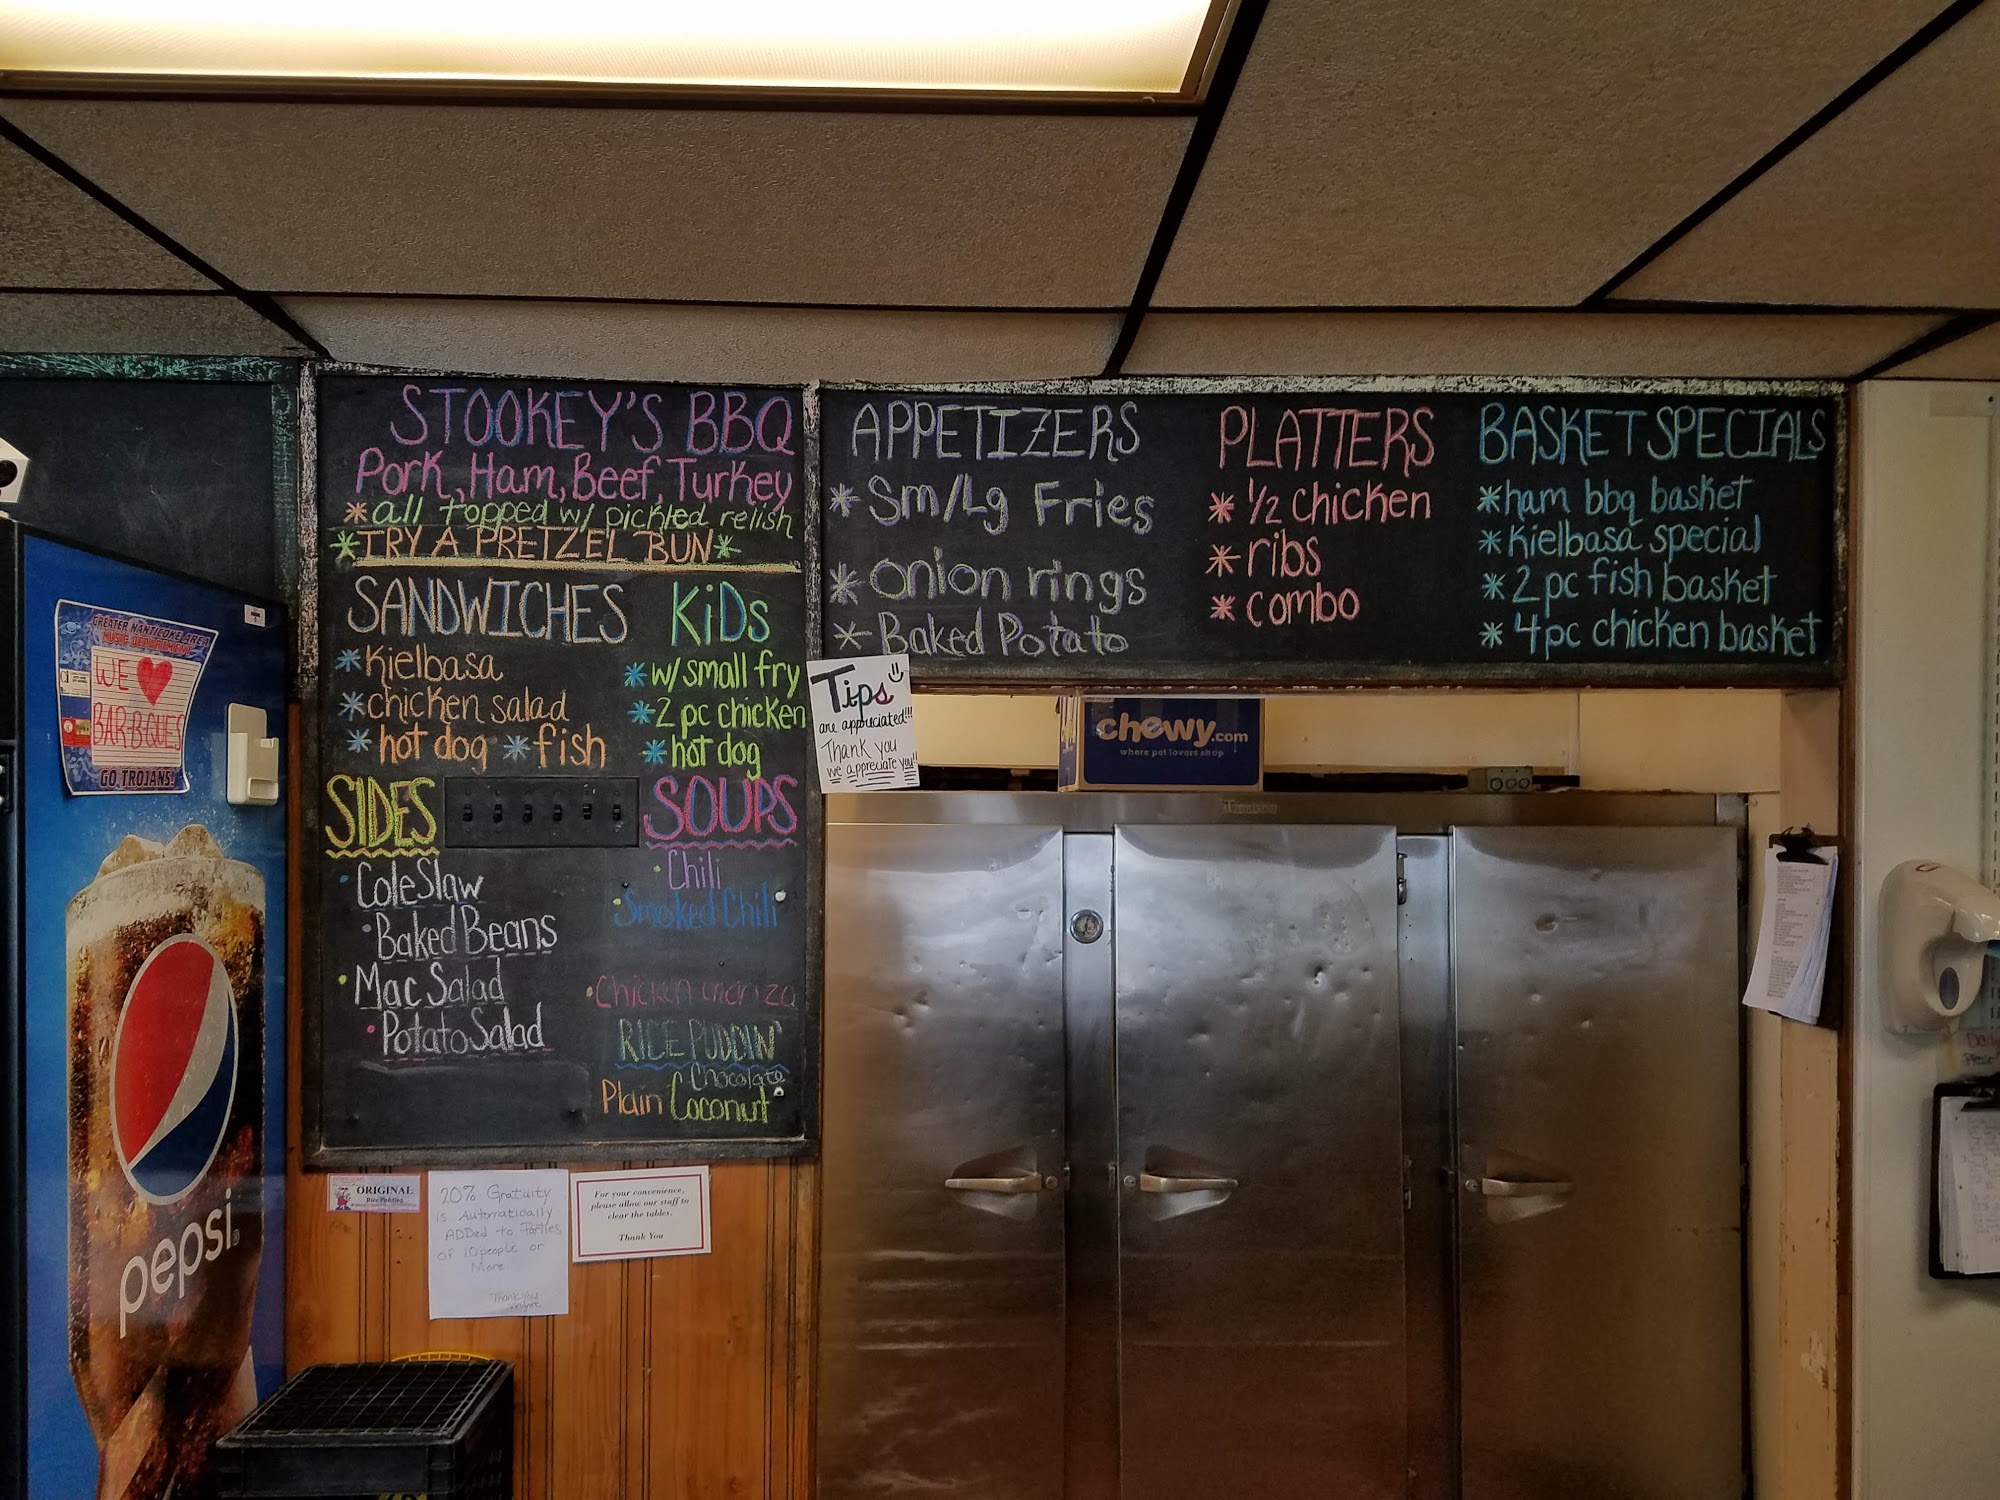 STOOKEY'S BBQ
Pork, Ham, Beef, Turkey
* all topped w/ pickled relish
* TRY A PRETZEL BUN *
SANDWICHES
* Kielbasa
* chicken salad
* hot dog * fish
KiDs
* w/ small fry
* 2 pc chicken
* hot dog
SIDES
• Cole Slaw
• Baked Beans
• Mac Salad
• Potato Salad
SOUPS
• Chili
• Smoked Chili
• Chicken
RICE PUDDIN'
Chocolate
Plain Coconut
APPETIZERS
* Sm/Lg Fries
* Onion rings
* Baked Potato
PLATTERS
* 1/2 chicken
* ribs
* combo
BASKET SPECIALS
* ham bbq basket
* Kielbasa special
* 2 pc fish basket
* 4 pc chicken basket
Tips
are appreciated!!!
Thank you
we appreciate you!!
chewy.com
where pet lovers shop
GREATER NANTICOKE AREA
MUSIC DEPARTMENT
WE
BAR-B-QUES
GO TROJANS!
pepsi
ORIGINAL
Rice Pudding
20% Gratuity
is Automatically
ADDed to Parties
of 10 people or
More
Thank you
For your convenience,
please allow our staff to
clear the tables.
Thank You